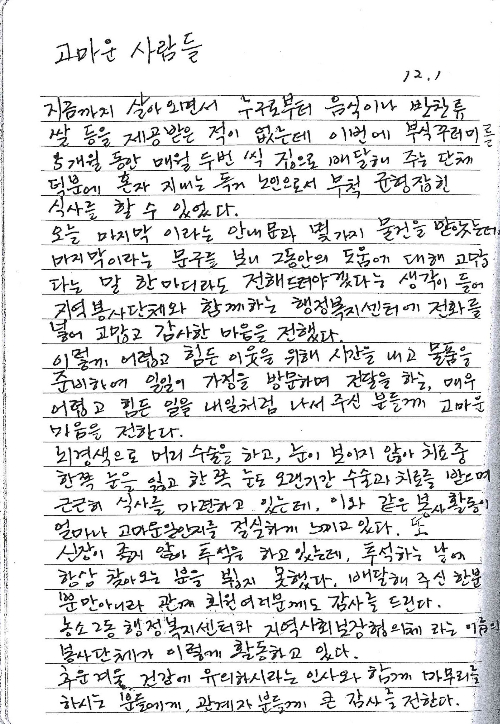 고마운 사람들
12.1
지금까지 살아오면서 누구로부터 음식이나 반찬류
쌀 등을 제공받은 적이 없는데 이번에 부식꾸러미를
5개월 동안 매월 두번 씩 집으로 배달해 주는 단체
덕분에 혼자 지내는 독거 노인으로서 무척 균형잡힌
식사를 할 수 있었다.
오늘 마지막 이라는 안내문과 몇가지 물건을 받았는데,
마지막이라는 문구를 보니 그동안의 도움에 대해 고맙
다는 말 한마디라도 전해드려야겠다는 생각이 들어
지역봉사단체와 함께하는 행정복지센터에 전화를
넣어 고맙고 감사한 마음을 전했다.
이렇게 어렵고 힘든 이웃을 위해 시간을 내고 물품을
준비하여 일일이 가정을 방문하며 전달을 하는, 매우
어렵고 힘든 일을 내일처럼 나서 주신 분들께 고마운
마음을 전한다.
뇌경색으로 머리 수술을 하고, 눈이 보이지 않아 치료중
한쪽 눈을 잃고 한 쪽 눈도 오랜기간 수술과 치료를 받으며
근근히 식사를 마련하고 있는데, 이와 같은 봉사활동이
얼마나 고마운일인지를 절실하게 느끼고 있다. 또
신장이 좋지 않아 투석을 하고있는데, 투석하는 날에
항상 찾아오는 분을 뵙지 못했다. 배달해 주신 한분
뿐만아니라 관계 회원여러분께도 감사를 드린다.
농소2동 행정복지센터와 지역사회보장협의체 라는 이름의
봉사단체가 이렇게 활동하고 있다.
추운겨울, 건강에 유의하시라는 인사와 함께 마무리를
하시는 분들에게, 관계자 분들께 큰 감사를 전한다.